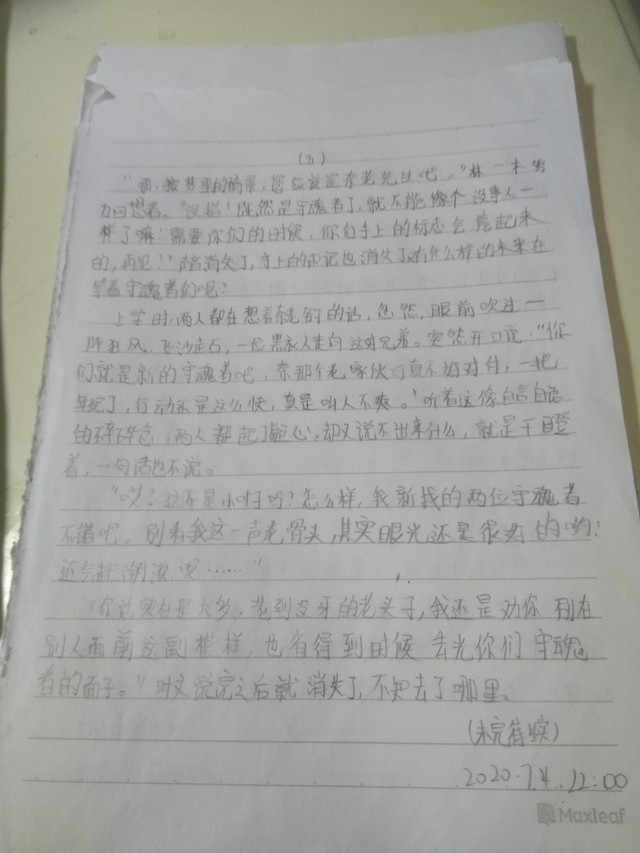 (五)
"那,按梦里的情景,您应该是李老先生吧。"林一木努
力回想着。"没错!既然是守魂者了,就不能像个没事人一
样了嘛!需要你们的时候,你们手上的标志会亮起来
的,再见!"消失了,手上的印记也消失了,有什么样的未来在
等着守魂者们呢?
上学时,两人都在想着的话,忽然,眼前吹过一
阵狂风,飞沙走石,一位黑衣人走向这对兄弟。突然开口说:"你
们就是新的守魂者吧,李那个老家伙可真不好对付,一把
年纪了,行动还是这么快,真是叫人不爽。"听着这像自言自语
的碎碎念,两人都起了疑心,却又说不出来什么,就是干瞪
着,一句话也不说。
"哎?这不是小归吗?怎么样,我新找的两位守魂者
不错吧。别看我这一身老骨头,其实眼光还是很好的哟!
还会赶潮流呢……"
"你话实在是太多,老到没牙的老头子,我还是劝你别在
别人面前这副模样,也省得到时候丢光你们守魂
者的面子。"说完之后就消失了,不知去了哪里。
(未完待续)
2020.7.4. 12:00
Maxleaf